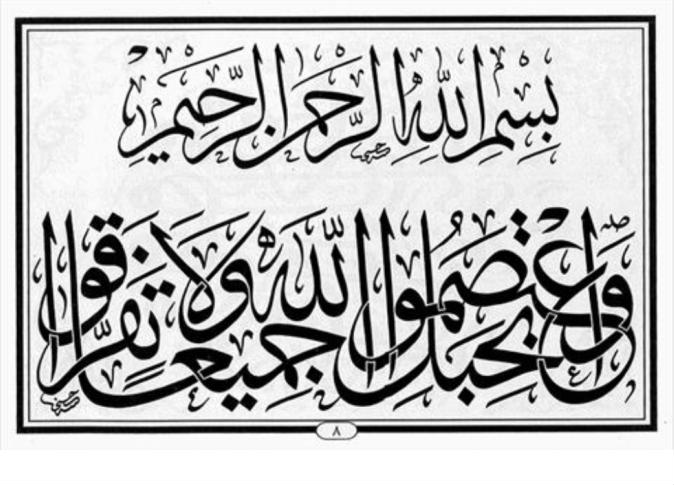 بِسْمِ اللهِ الرَّحْمٰنِ الرَّحِيْمِ
وَاعْتَصِمُوا بِحَبْلِ اللهِ جَمِيعًا وَلَا تَفَرَّقُوا
٨